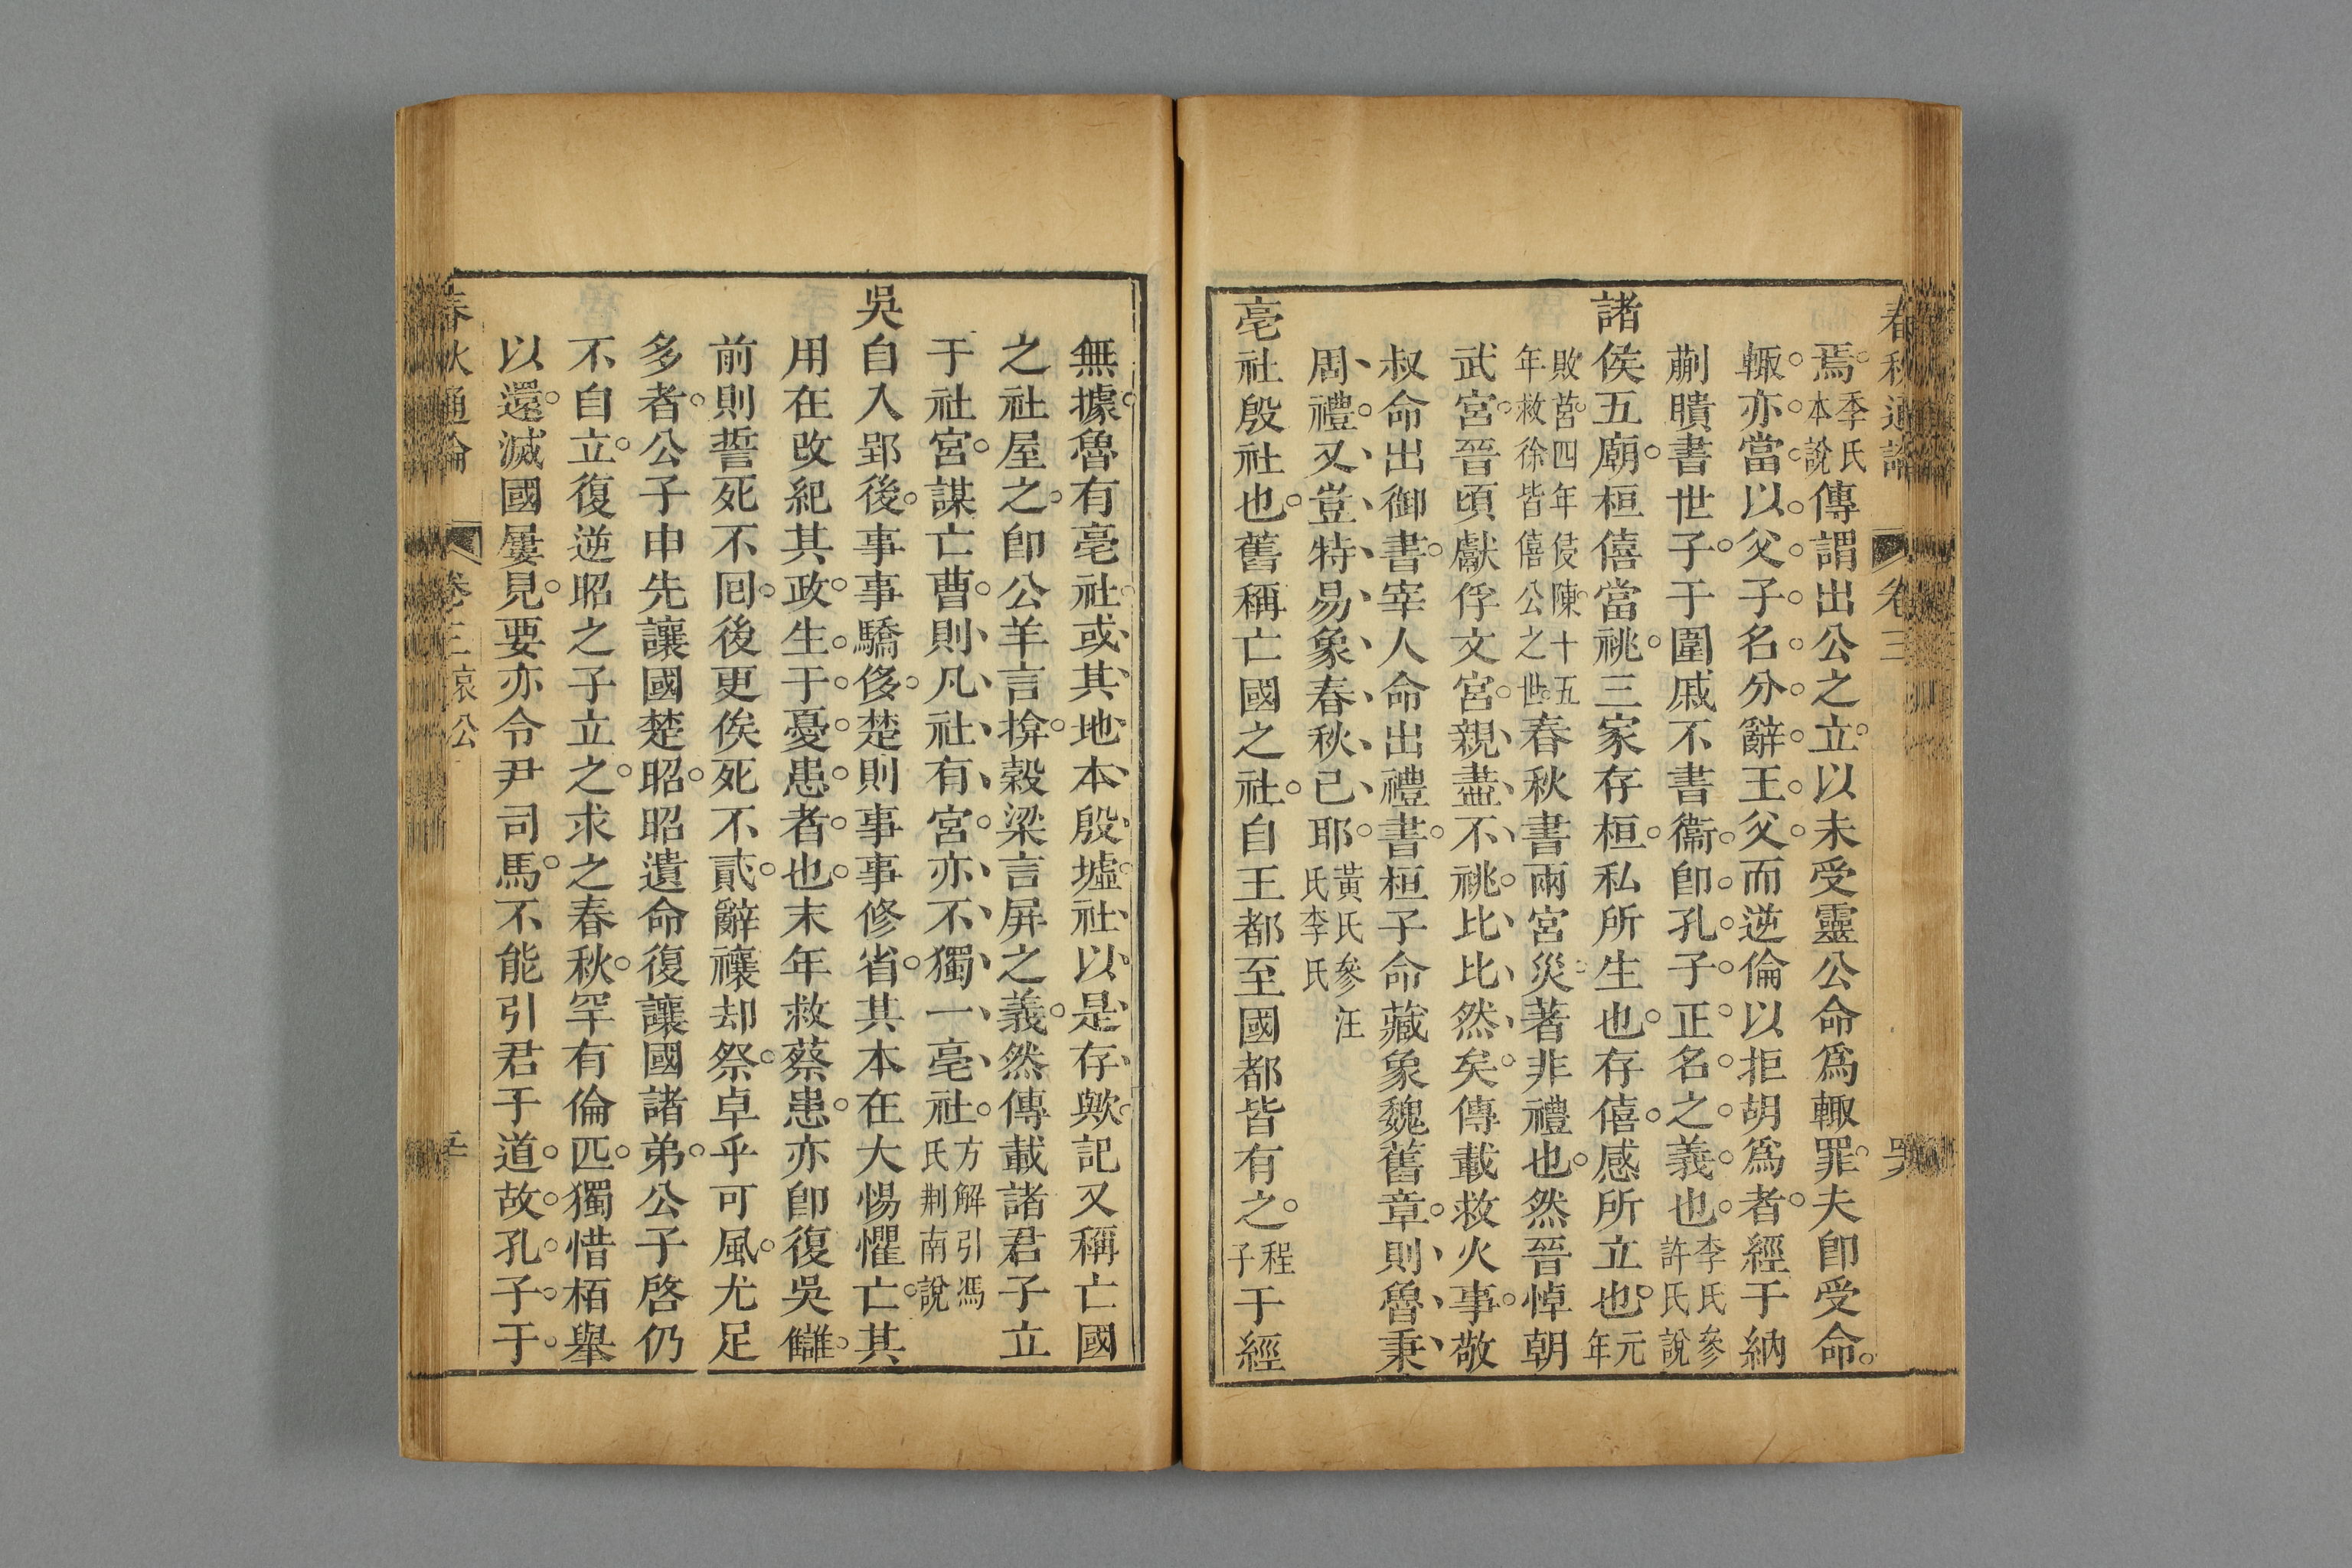 春秋通論 卷三
焉季氏本說傳謂出公之立以未受靈公命爲輒罪夫卽受命
輒亦當以父子名分辭王父而逆倫以拒胡爲者經于納
蒯聵書世子于圍戚不書衞卽孔子正名之義也李氏參許氏說
諸侯五廟桓僖當祧三家存桓私所生也存僖感所立也元年
敗莒四年侵陳十五年救徐皆僖公之世春秋書兩宮災著非禮也然晉悼朝
武宮晉頃獻俘文宮親盡不祧比比然矣傳載救火事敬
叔命出御書宰人命出禮書桓子命藏象魏舊章則魯秉
周禮又豈特易象春秋已耶黃氏參汪氏李氏
亳社殷社也舊稱亡國之社自王都至國都皆有之程子于經
無據魯有亳社或其地本殷墟社以是存歟記又稱亡國
之社屋之卽公羊言揜穀梁言屏之義然傳載諸君子立
于社宮謀亡曹則凡社有宮亦不獨一亳社方解引馮氏荆南說
吳自入郢後事事驕侈楚則事事修省其本在大惕懼亡其
用在改紀其政生于憂患者也末年救蔡患亦卽復吳讎
前則誓死不囘後更俟死不貳辭禳却祭卓乎可風尤足
多者公子申先讓國楚昭昭遺命復讓國諸弟公子啓仍
不自立復逆昭之子立之求之春秋罕有倫匹獨惜栢舉
以還滅國屢見要亦令尹司馬不能引君于道故孔子于
春秋通論 卷三哀公